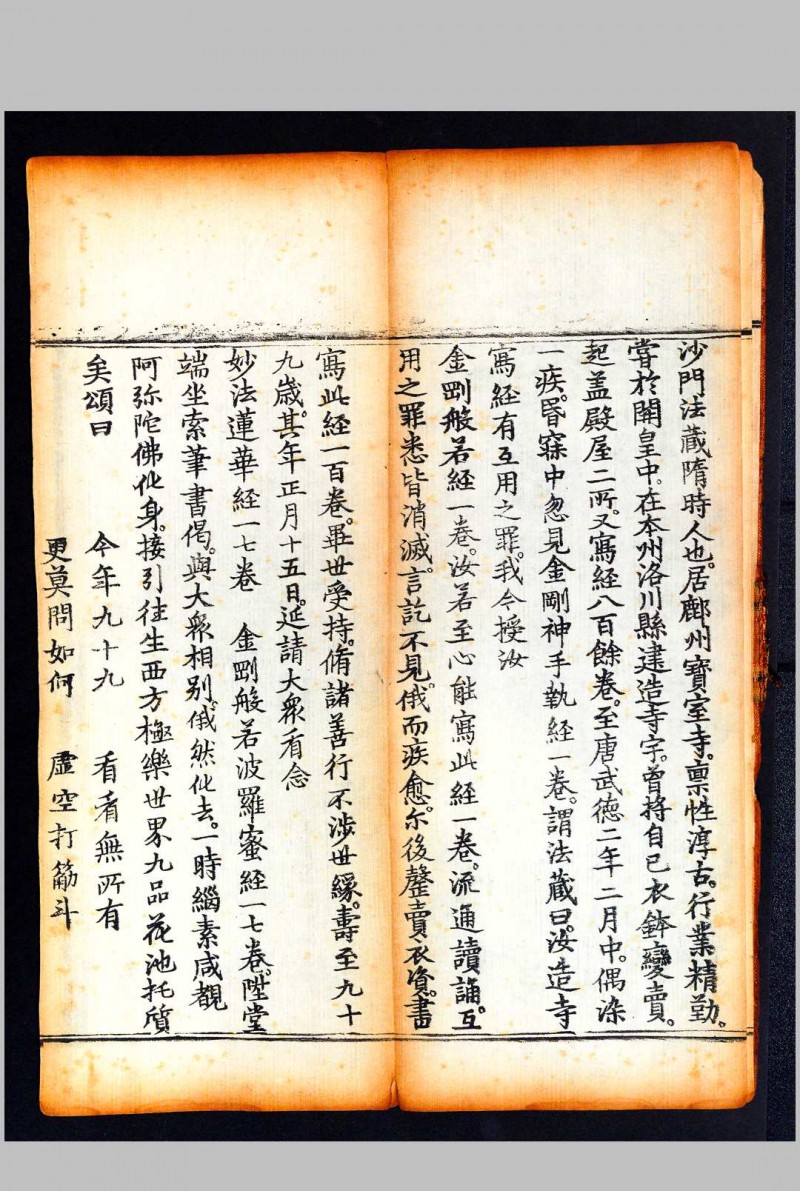 沙門法藏隋時人也。居鄜州寶室寺。禀性淳古。行業精勤。
甞於開皇中。在本州洛川縣建造寺宇。曾将自己衣鉢變賣。
起盖殿屋二所。又寫經八百餘卷。至唐武德二年二月中。偶染
一疾。昏寐中忽見金剛神手執經一卷。謂法藏曰。汝造寺
寫經有互用之罪。我今授汝
金剛般若經一卷。汝若至心能寫此經一卷。流通讀誦。互
用之罪悉皆消滅。言訖不見。俄而疾愈。尔後罄賣衣資。書
寫此經一百卷。畢世受持。脩諸善行不涉世緣。壽至九十
九歲。其年正月十五日。延請大衆看念
妙法蓮華經一七卷 金剛般若波羅蜜經一七卷。陞堂
端坐索筆書偈。與大衆相别。俄然化去。一時緇素咸覩
阿弥陀佛化身。接引往生西方極樂世界九品花池托質
矣頌曰 今年九十九 看看無所有
更莫問如何 虚空打筋斗